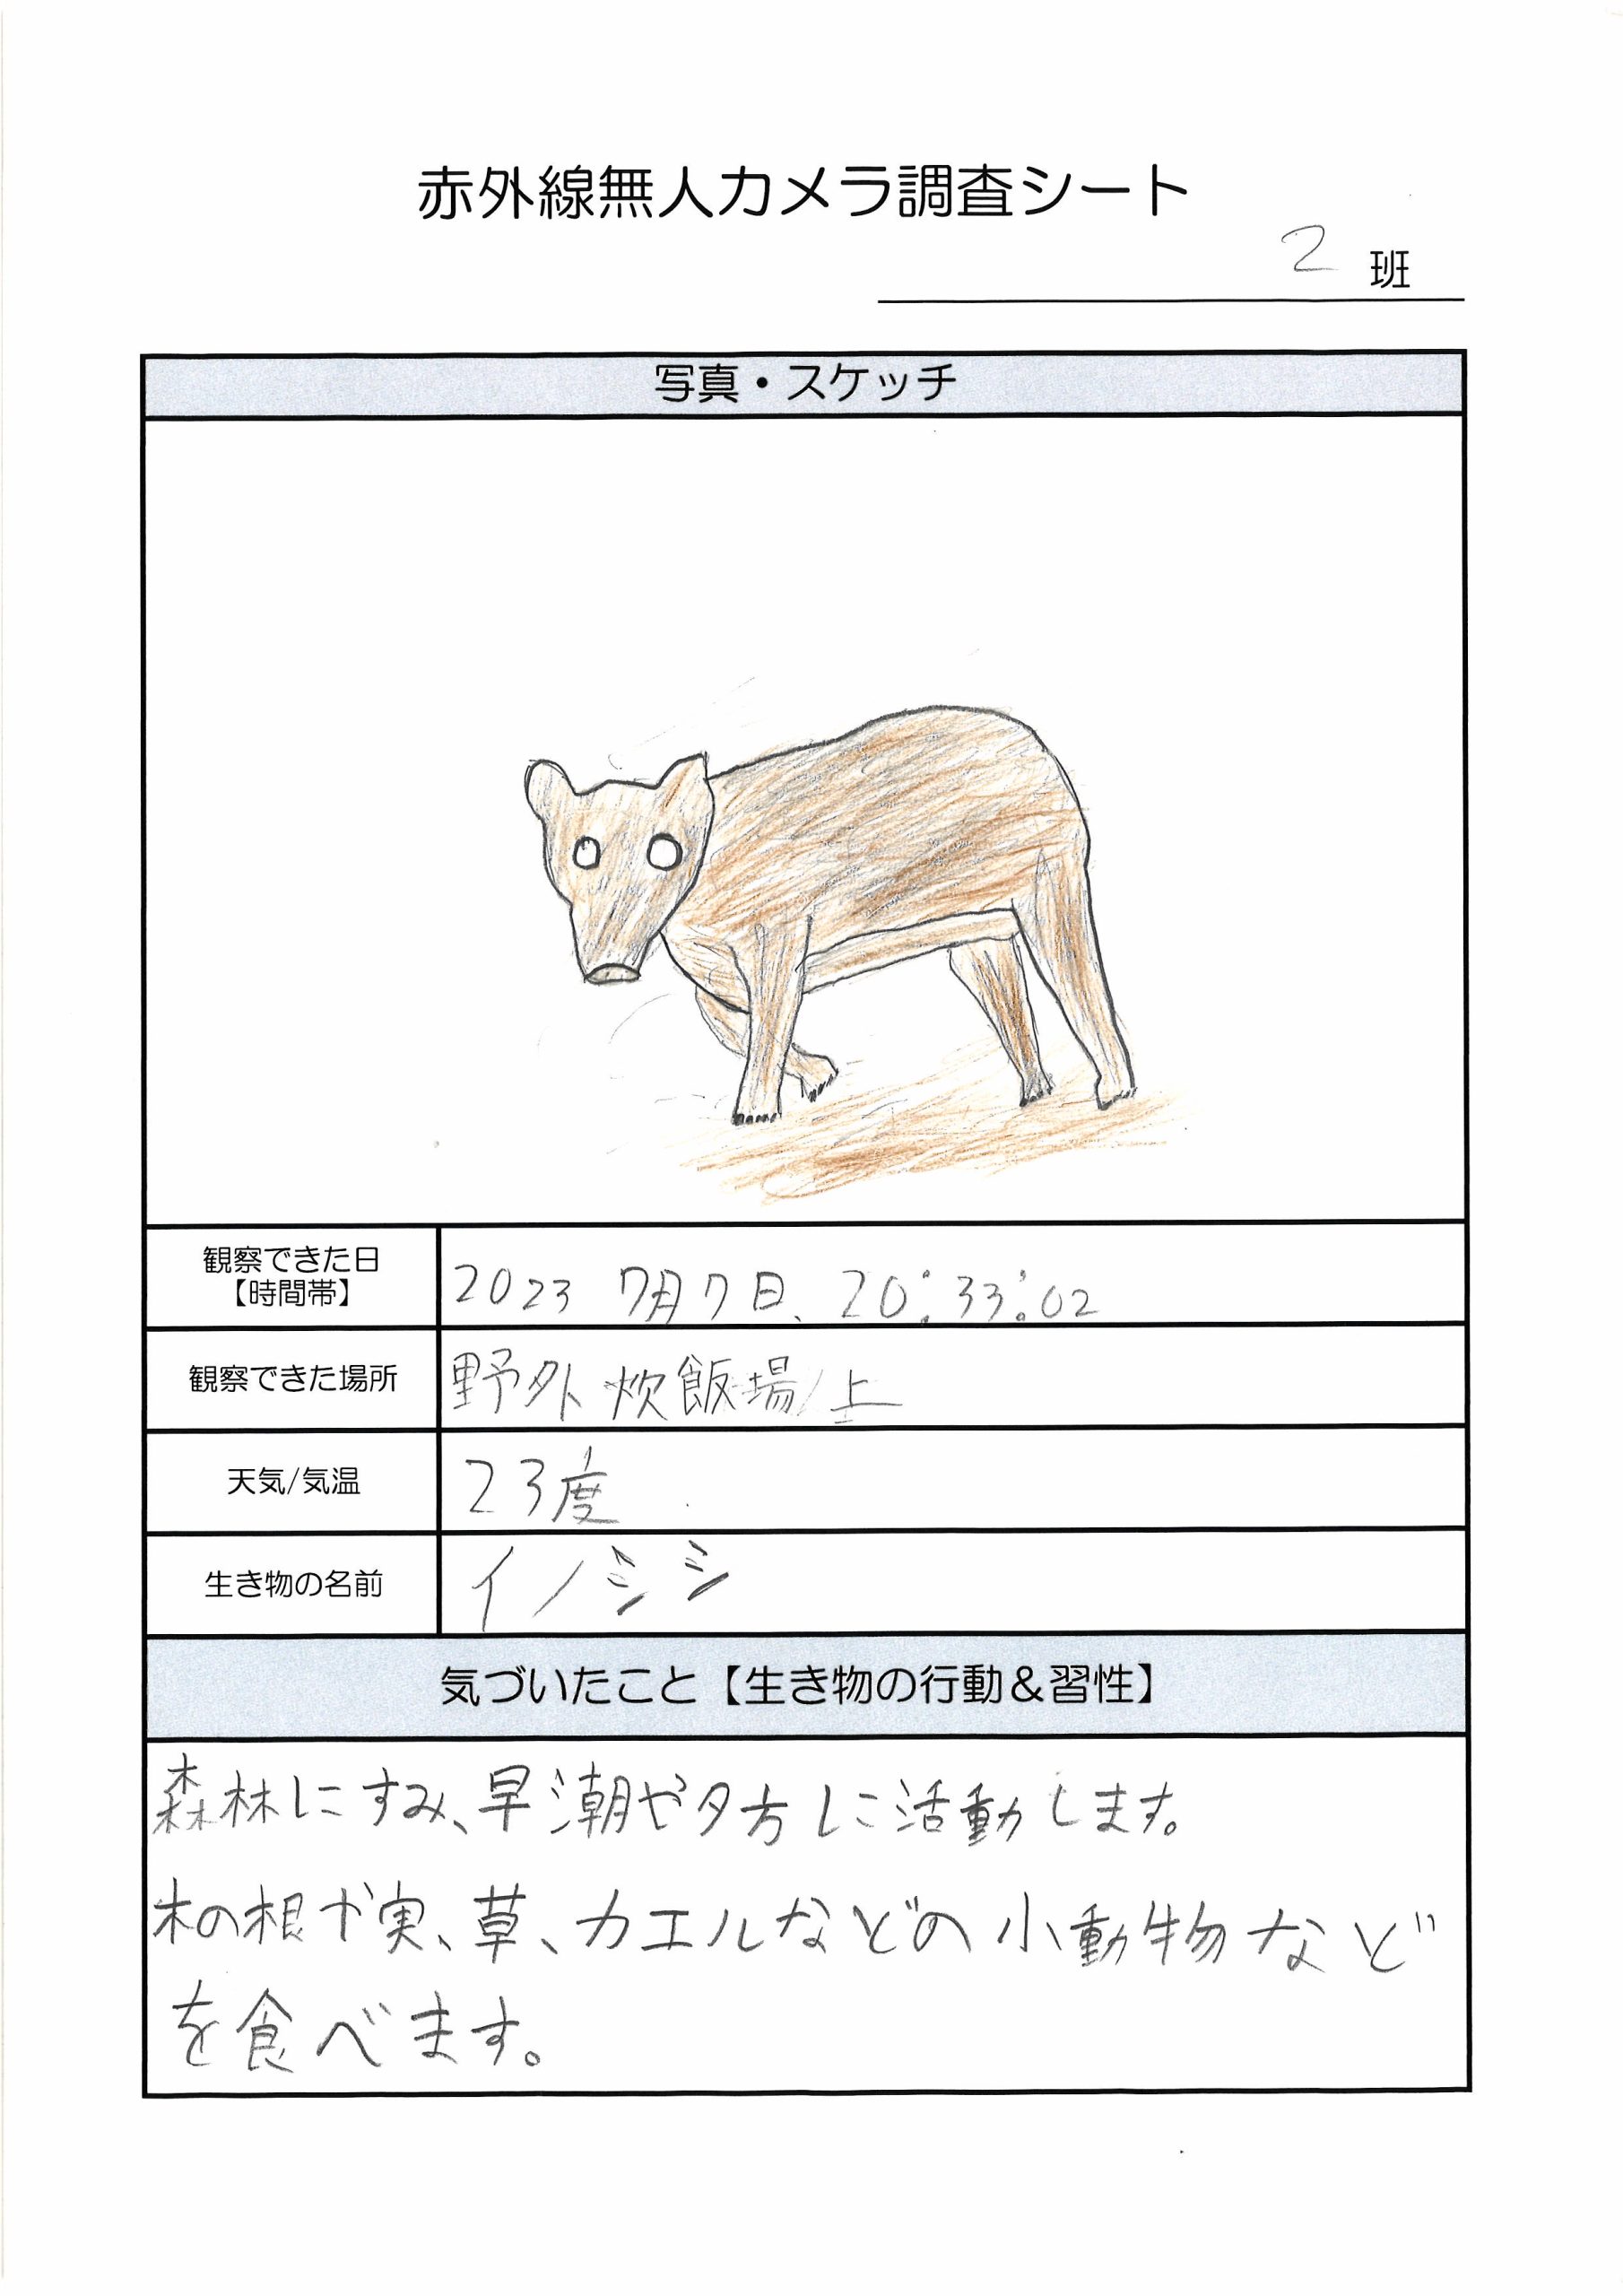 赤外線無人カメラ調査シート
2 班
写真・スケッチ
観察できた日
【時間帯】
2023 7月7日、20:33:02
観察できた場所
野外炊飯場/上
天気/気温
23度
生き物の名前
イノシシ
気づいたこと【生き物の行動&習性】
森林にすみ、早潮や夕方に活動します。
木の根や実、草、カエルなどの小動物など
を食べます。